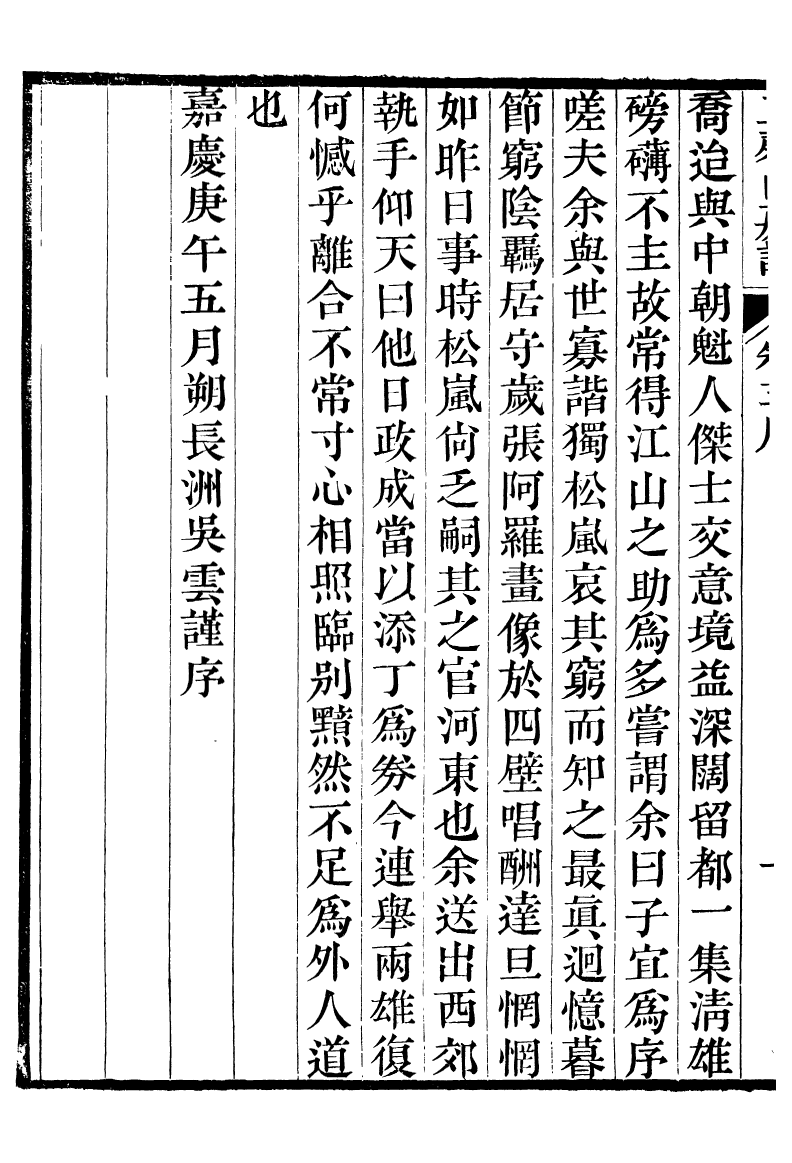 喬迨與中朝魁人傑士交意境益深闊留都一集淸雄
磅礴不主故常得江山之助爲多嘗謂余曰子宜爲序
嗟夫余與世寡諧獨松嵐哀其窮而知之最眞迴憶暮
節窮陰羈居守歲張阿羅畫像於四壁唱酬達旦惘惘
如昨日事時松嵐尙乏嗣其之官河東也余送出西郊
執手仰天曰他日政成當以添丁爲券今連舉兩雄復
何憾乎離合不常寸心相照臨别黯然不足爲外人道
也
嘉慶庚午五月朔長洲吳雲謹序